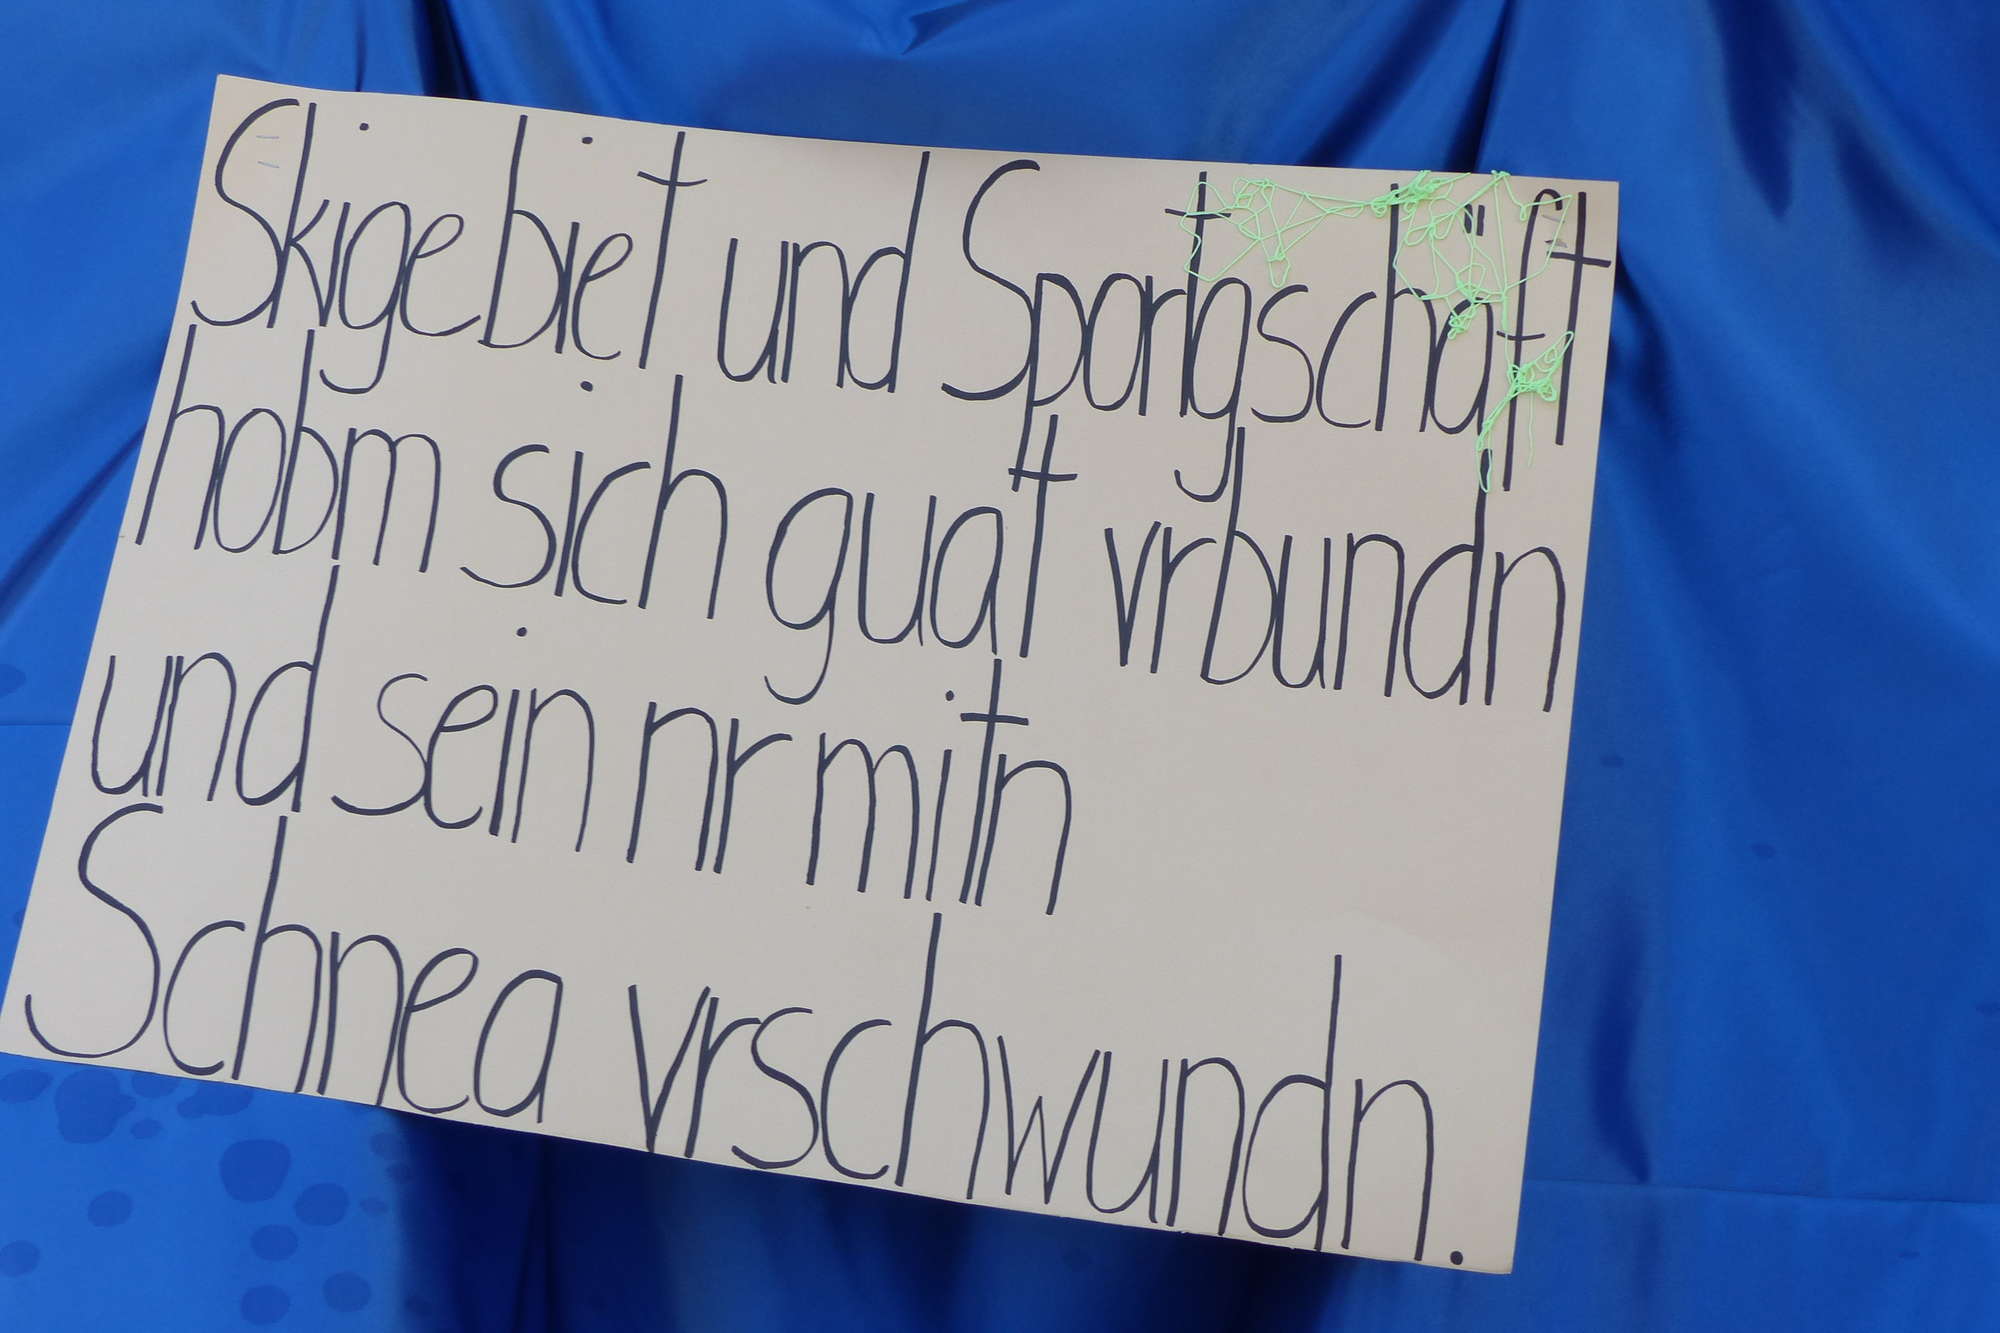 Skigebiet und Sportgschäft
hobm sich guat vrbundn
und sein nr mitn
Schnea vrschwundn.